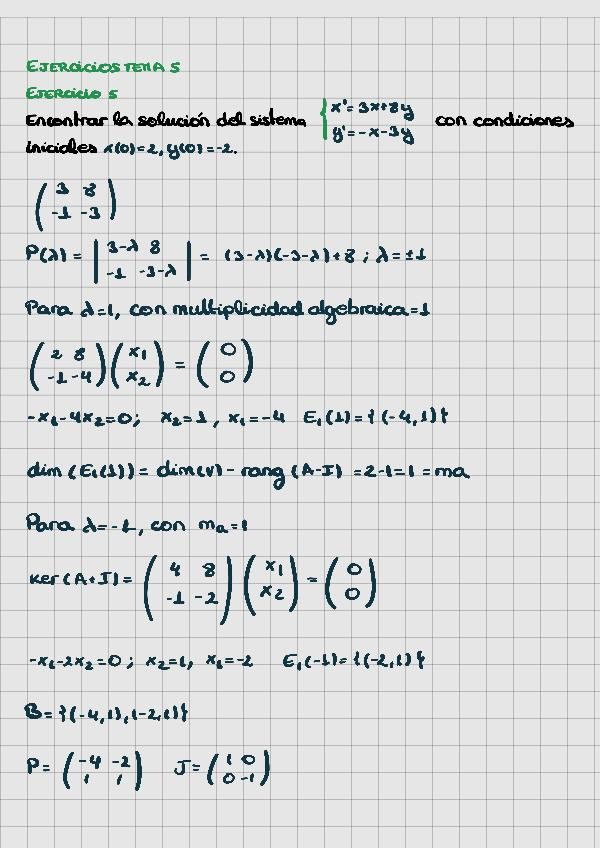 EJERCICIOS TEMA 5
EJERCICIO 5
Encontrar la solución del sistema { x'=3x+8y
y'=-x-3y con condiciones
iniciales x(0)=2, y(0)=-2.
( 3 8
-1 -3 )
P(λ) = | 3-λ 8
-1 -3-λ | = (3-λ)(-3-λ)+8 ; λ=±1
Para λ=1, con multiplicidad algebraica=1
( 2 8
-1 -4 ) ( x1
x2 ) = ( 0
0 )
-x1-4x2=0; x2=1, x1=-4 E1(1)={(-4,1)}
dim(E1(1))= dim(V)- rang(A-I) =2-1=1=ma
Para λ=-1, con ma=1
ker(A+I)= ( 4 8
-1 -2 ) ( x1
x2 ) = ( 0
0 )
-x1-2x2=0; x2=1, x1=-2 E1(-1)={(-2,1)}
B={(-4,1),(-2,1)}
P= ( -4 -2
1 1 ) J= ( 1 0
0 -1 )